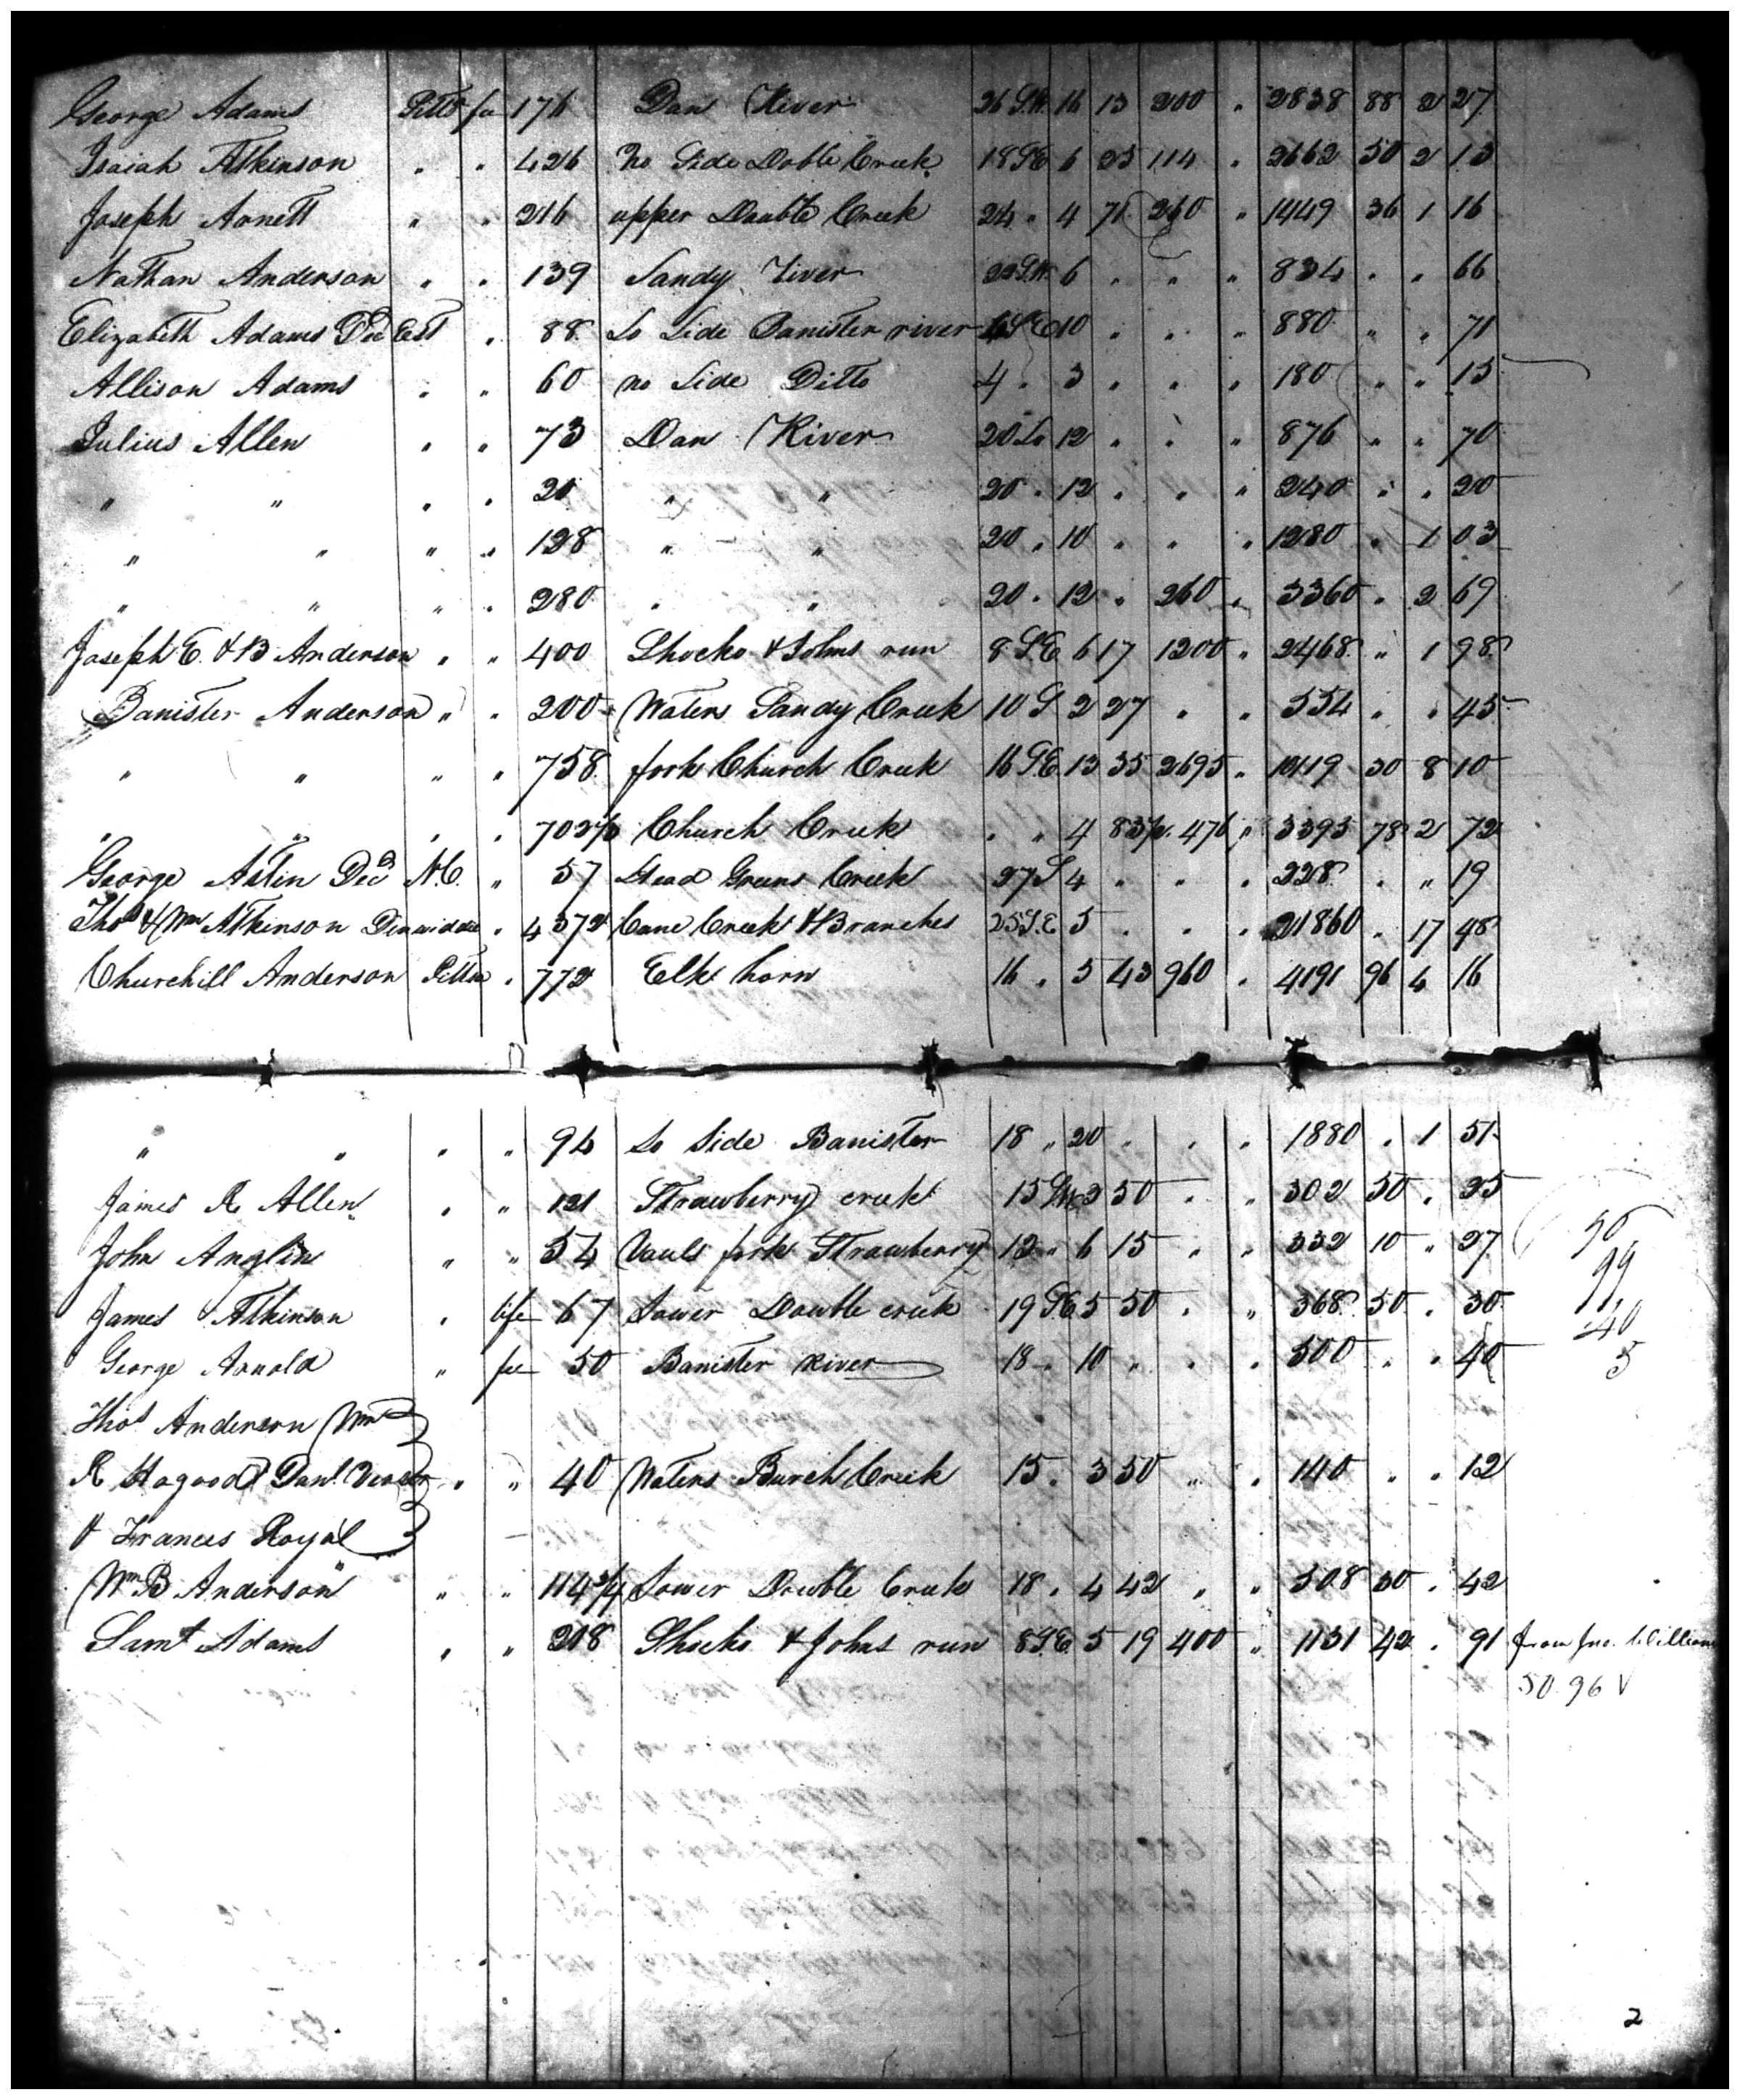 George Adams Pitts fee 176 Dan River 26 S.W. 16 13 200 " 2838 88 2 27
Isaiah Atkinson " " 426 No Side Doble Creek 18 S.E 6 25 114 " 2662 50 2 13
Joseph Arnett " " 216 upper Double Creek 24 " 4 71 260 " 1449 36 1 16
Nathan Anderson " " 139 Sandy River 22 S.W. 6 " " " 834 " " 66
Elizabeth Adams Dec Est " 88 So Side Banister river S E 10 " " " 880 " " 71
Allison Adams " " 60 no Side Ditto 4 " 3 " " " 180 " " 15
Julius Allen " " 73 Dan River 20 So 12 " " " 876 " " 70
" " " " 20 " " 20 " 12 " " " 240 " " 20
" " " " 128 " " 20 " 10 " " " 1280 " 1 03
" " " " 280 " " 20 " 12 " 260 " 3360 " 2 69
Joseph E. & B Anderson " " 400 Shocko & Johns run 8 S.E 6 17 1200 " 2468 " 1 98
Banister Anderson " " 200 Waters Sandy Creek 10 S 2 27 " " 554 " " 45
" " " " 758 fork Church Creek 16 S.E. 13 35 2695 " 10119 30 8 10
" " " " 702 1/2 Church Creek " " 4 83 1/2 476 " 3393 78 2 72
George Astin Decd N.C. " 57 Head Greens Creek 27 S 4 " " " 228 " " 19
Thos & Wm Atkinson Dinwiddie " 4372 Cane Creek & Branches 25 S.E 5 " " " 21860 " 17 48
Churchill Anderson Pittsa " 772 Elk horn 16 " 5 43 960 " 4191 96 4 16
" " " " 94 So Side Banister 18 " 20 " " " 1880 " 1 51
James R Allen " " 121 Strawberry creek 15 S.W. 2 50 " " 302 50 " 25
John Anglin " " 54 Vauls fork Strawberry 12 " 6 15 " " 332 10 " 27
James Atkinson " life 67 Lower Double creek 19 S.E 5 50 " " 368 50 " 30
George Arnold " fee 50 Banister River 18 " 10 " " " 500 " " 40
50
99
99
40
5
Thos Anderson Wm
R Hagood Danl " " 40 Waters Burch Creek 15 " 3 50 " " 140 " " 12
& Frances Royal
Wm B Anderson " " 114 3/4 Lower Double Creek 18 " 4 42 " " 508 30 " 42
Saml Adams " " 208 Shocko & Johns run 8 S.E. 5 19 400 " 1131 42 " 91 from Jno.
50.96 V
2